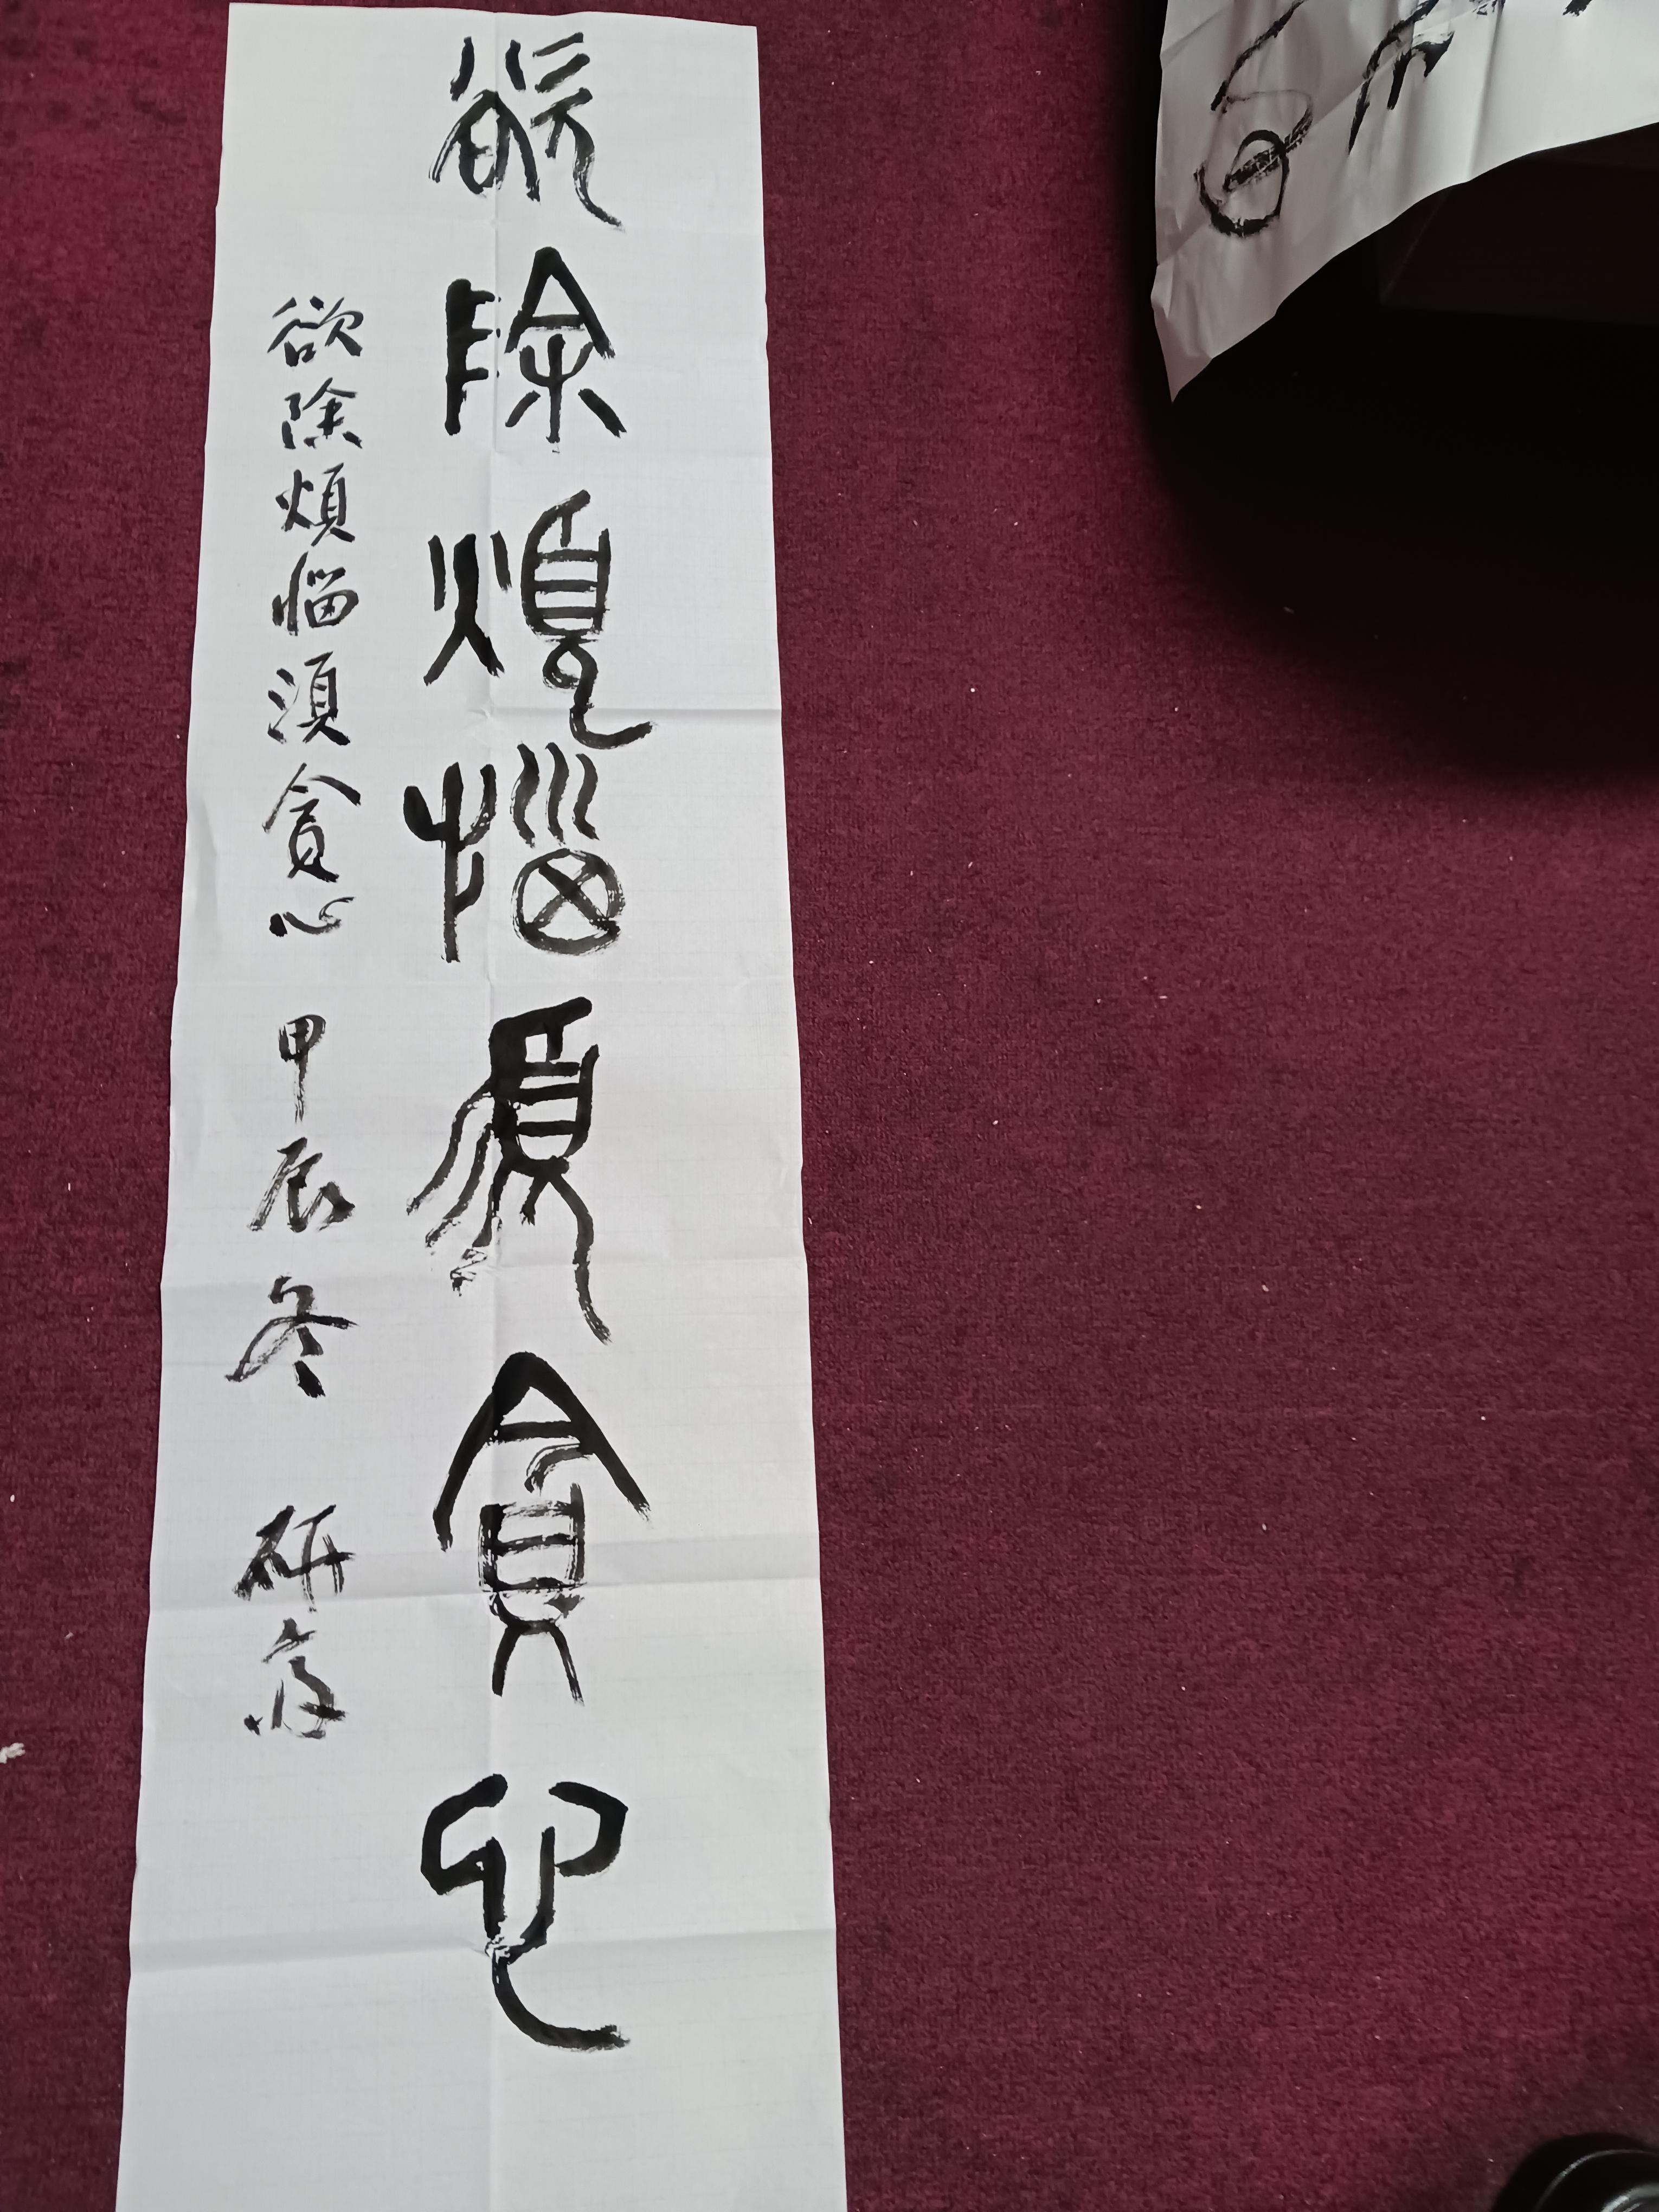 欲除煩惱須貪心
欲除煩惱須貪心 甲辰冬 研齋